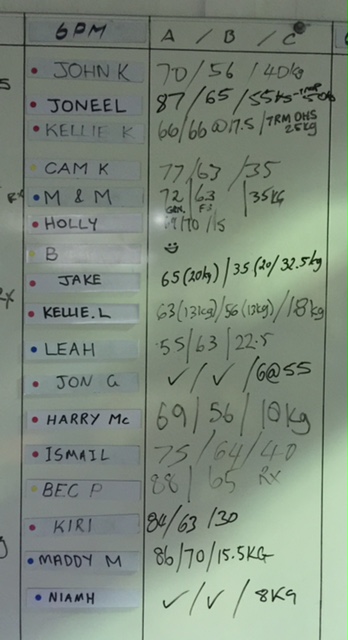 6PM A / B / C
JOHN K 70/56/40kg
JONEEL 87/65/55KG
KELLIE K 66/66@17.5/TRM OHS 25kg
CAM K 77/63/35
M & M 72/63/35KG
HOLLY /70/15
B
JAKE 65(20kg)/35(20/32.5kg
KELLIE.L 63(13kg)/56(13kg)/18kg
LEAH 55/63/22.5
JON G ✓/✓/6@55
HARRY Mc 69/56/10kg
ISMAIL 75/64/40
BEC P 88/65 RX
KIRI 84/63/30
MADDY M 86/70/15.5KG
NIAMH ✓/✓/8KG